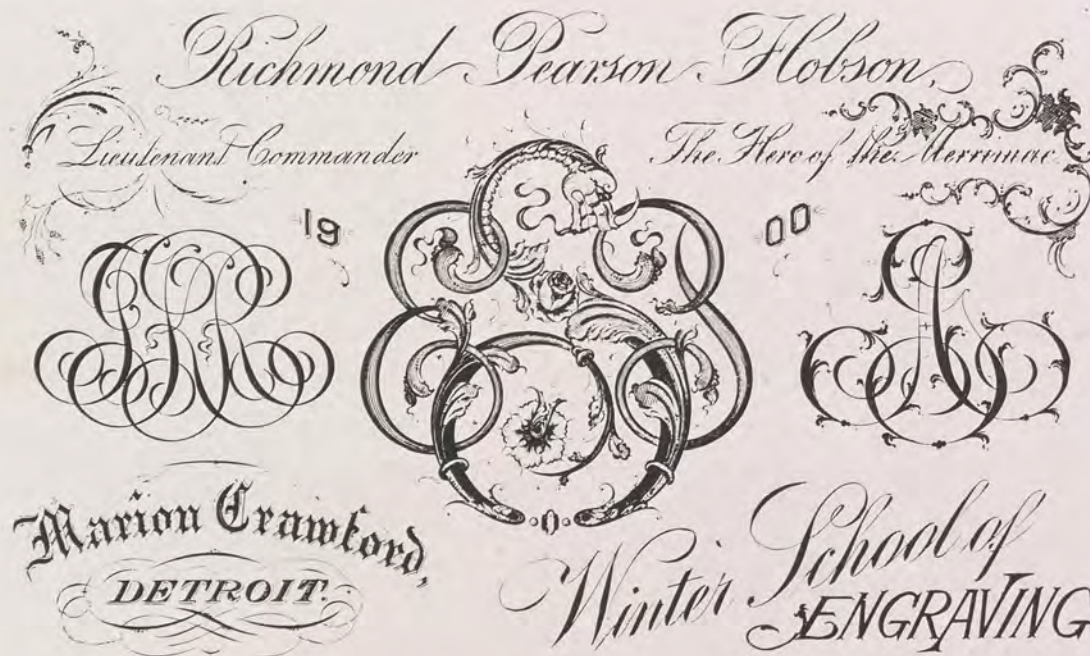 Richmond Pearson Hobson,
Lieutenant Commander
The Hero of the Merrimac
1900
Marion Crawford,
DETROIT.
Winter School of
ENGRAVING